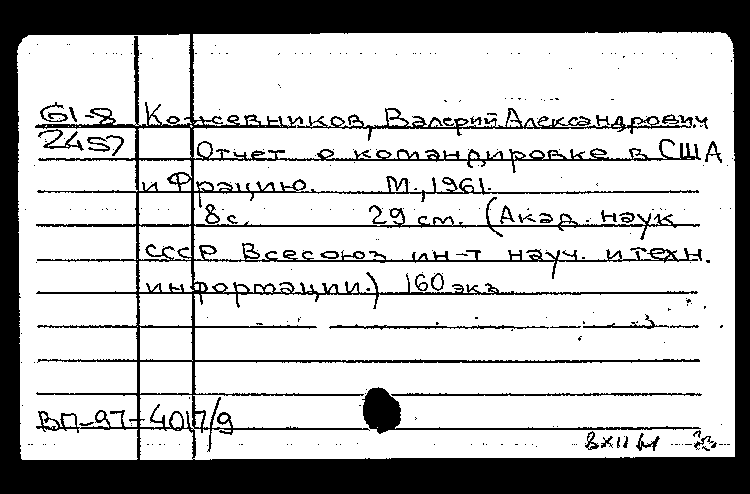 61-8 Кожевников, Валерий Александрович
2457 Отчет о командировке в США
и Фрацию. М., 1961.
8 с. 29 см. (Акад. наук
СССР Всесоюз ин-т науч. и техн.
информации.) 160 экз
ВП-97-4017/9
8 XII 61